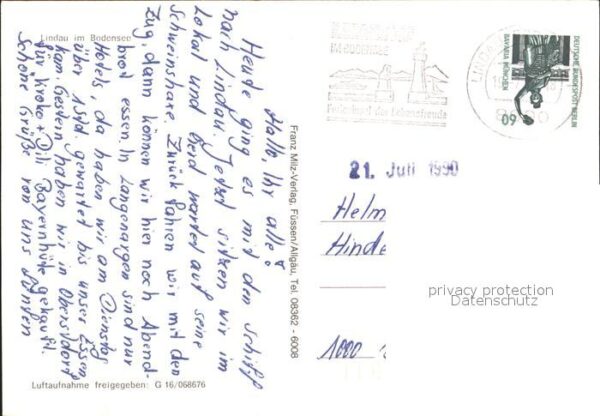 Lindau im Bodensee
Hallo, Ihr alle!
Heute ging es mit dem Schiff
nach Lindau. Jetzt sitzen wir im
Lokal und Gerd wartet auf seine
Schweinshaxe. Zurück fahren wir mit dem
Zug, dann können wir hier noch Abend-
brot essen. In Langenargen sind nur
Hotels, da haben wir am Dienstag
über 1 Std gewartet bis unser Essen
kam. Gestern haben wir in Oberstdorf
für Kroko + Dili Bayernhüte gekauft.
Schöne Grüße von uns
Luftaufnahme freigegeben: G 16/068676
Franz Milz-Verlag, Füssen/Allgäu, Tel. 08362 - 6008
IM BODENSEE
Ferieninsel der Lebensfreude
LINDAU
DEUTSCHE BUNDESPOST BERLIN
BAVARIA MÜNCHEN
60
21. Juli 1990
Helm
Hinde
1000
privacy protection
Datenschutz